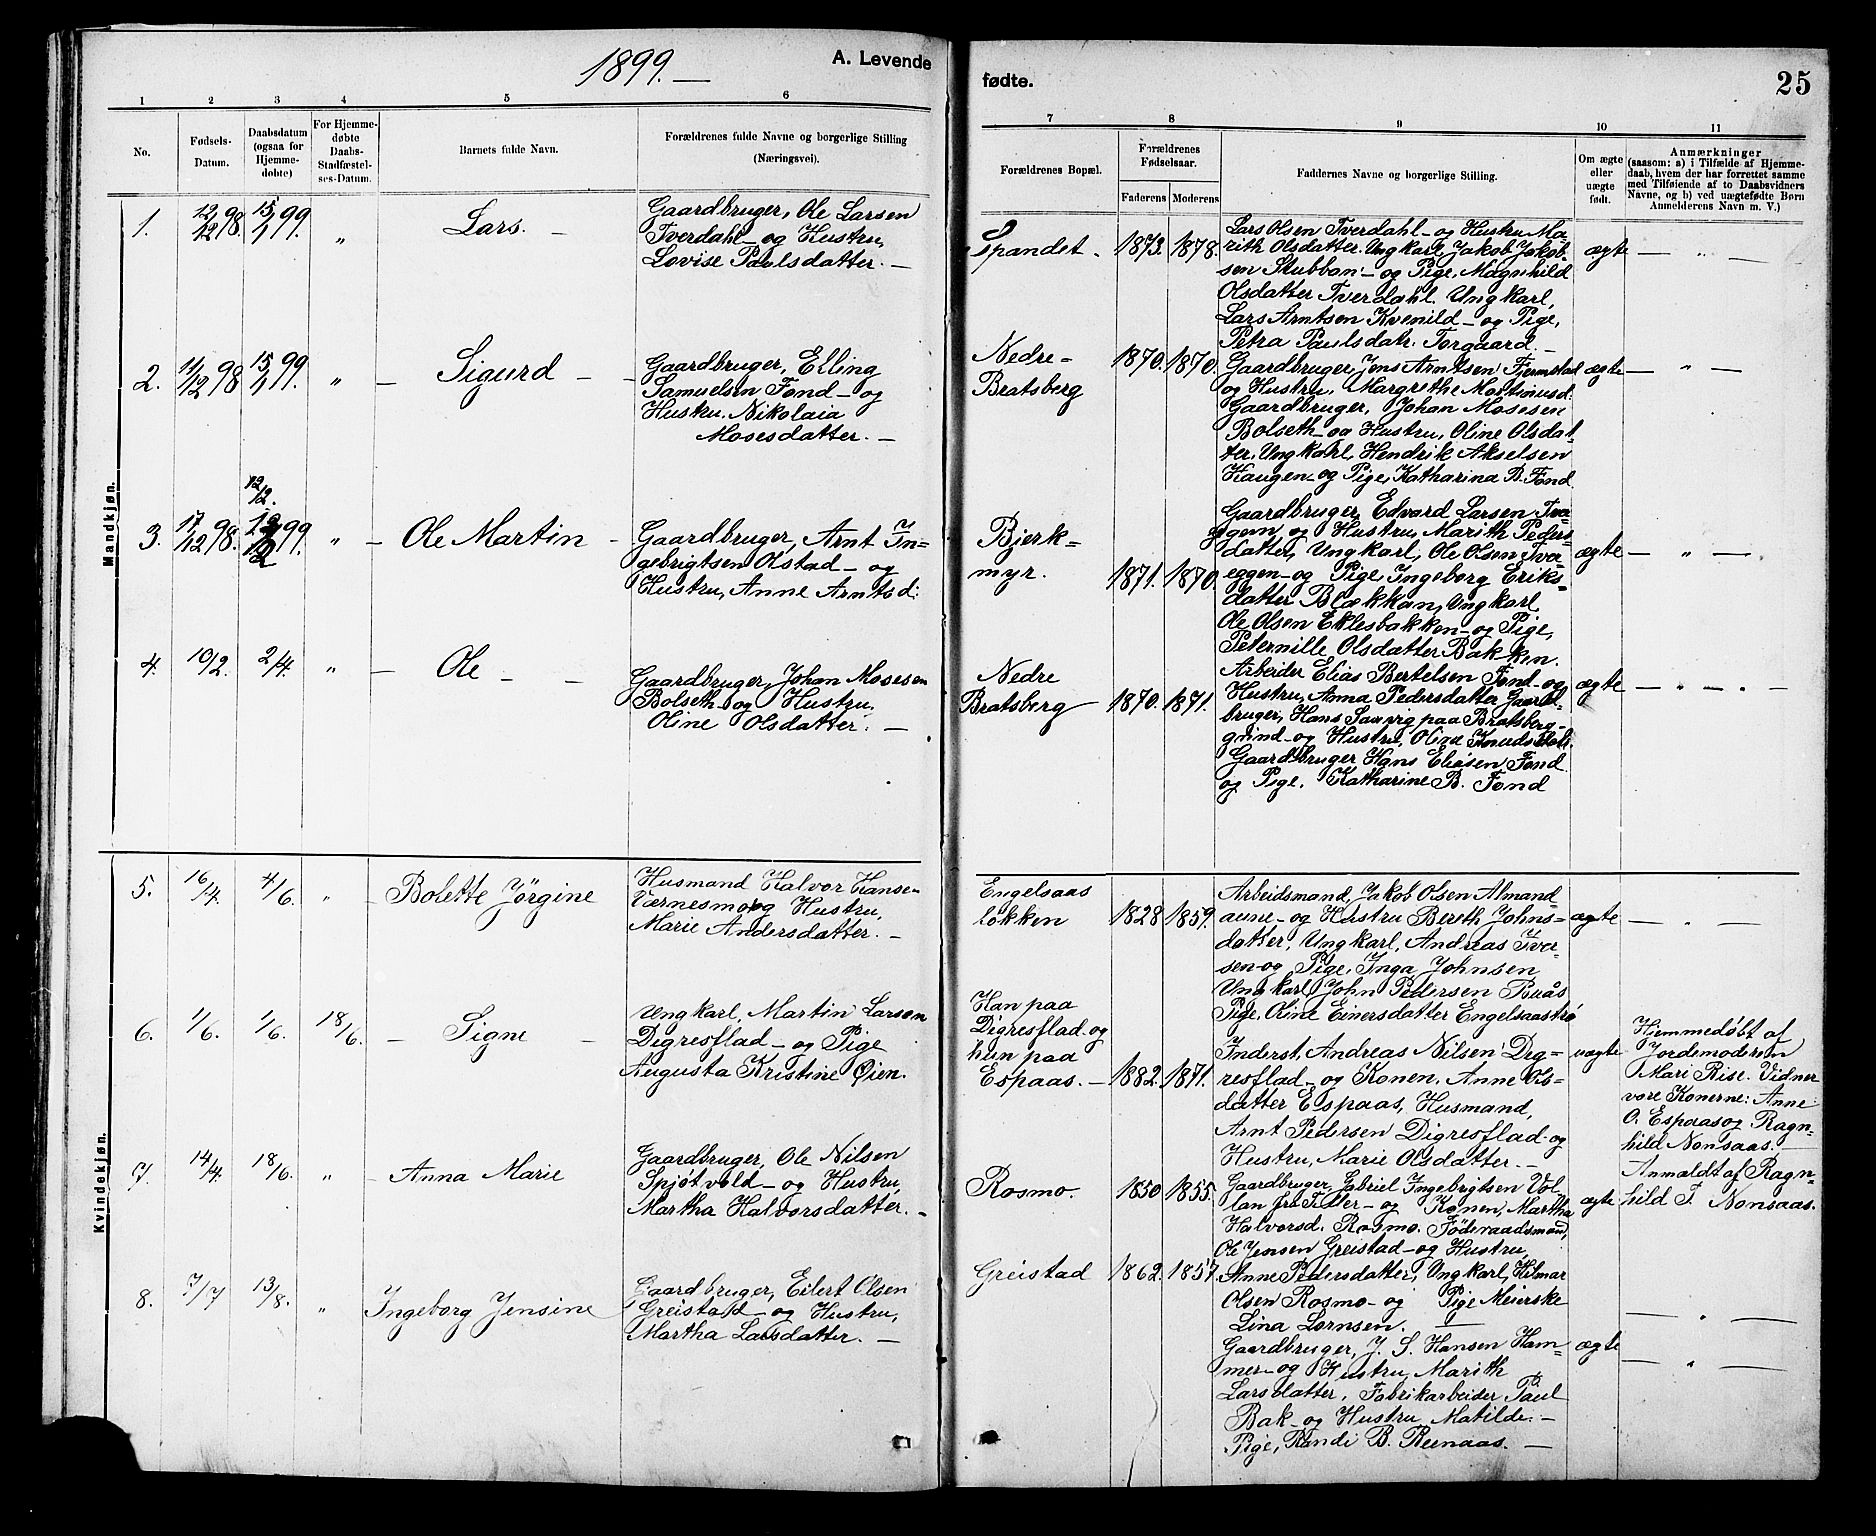 1899. —
A. Levende
fødte.
25
1 2 3 4 5 6
7 8 9 10 11
No.
Fødsels-
Datum.
Daabsdatum
(ogsaa for
Hjemme-
døbte)
For Hjemme-
døbte
Daabs-
Stadfæstel-
ses-Datum.
Barnets fulde Navn.
Forældrenes fulde Navne og borgerlige Stilling
(Næringsvei).
Forældrenes Bopæl.
Forældrenes
Fødselsaar.
Faderens Moderens
Faddernes Navne og borgerlige Stilling.
Om ægte
eller
uægte
født.
Anmærkninger
(saasom: a) i Tilfælde af Hjemme-
daab, hvem der har forrettet samme
med Tilføiende af to Daabsvidners
Navne, og b) ved uægtefødte Børn
Anmelderens Navn m. V.)
Mandkjøn.
1. 12/12 98. 15/1 99. " Lars. —
Gaardbruger, Ole Larsen
Tverdahl — og Hustru,
Lovise Paulsdatter. —
Spandet. 1873. 1878.
Lars Olsen Tverdahl — og Hustru Ma-
rith Olsdatter. Ungkarl, Jakob Jakob-
sen Stubban — og Pige, Magnhild
Olsdatter Tverdahl. Ungkarl,
Lars Arntsen Kvenild — og Pige,
Petra Paulsdatr. Torgaard. —
ægte — " —
2. 11/12 98 15/1 99. " — Sigurd —
Gaardbruger, Elling
Samuelsen Fond — og
Hustru, Nikolaia
Mosesdatter. —
Nedre-
Bratsberg
1870. 1870.
Gaardbruger, Jens Arntsen Fjermstad
og Hustru, Margrethe Martinusd.
Gaardbruger, Johan Mosesen
Bolseth — og Hustru, Oline Olsdat-
ter, Ungkarl, Hendrik Akselsen
Haugen — og Pige, Katharina B. Fond
ægte — " —
3. 17/12 98. 12/2. 99. " — Ole Martin —
Gaardbruger, Arnt In=
gebrigtsen Olstad — og
Hustru, Anne Arntsd:
Bjerk=
myr. 1871. 1870.
Gaardbruger, Edvard Larsen Tva-
ggem og Hustru, Marith Peders-
datter, Ungkarl, Ole Olsen Tver-
eggen — og Pige, Ingeborg Eriks-
datter Blækkan, Ungkarl,
Ole Olsen Eklesbakken — og Pige,
Peternille Olsdatter Bakken.
ægte — " —
4. 10/2. 2/4. " — Ole — —
Gaardbruger, Johan Mosesen
Bolseth — og Hustru,
Oline Olsdatter. —
Nedre
Bratsberg 1870. 1871.
Arbeider Elias Bertelsen Fond — og
Hustru, Anna Pedersdatter Gaard-
bruger, Hans paa Bratsberg-
grind — og Hustru, Olina
Gaardbruger Hans Eliasen Fond
og Pige, Katharine B. Fond
ægte — " — . —
Kvindekjøn.
5. 16/4. 4/6. " — Bolette Jörgine
Husmand Halvor Hansen
Værnesmo og Hustru,
Marie Andersdatter. —
Engelsaas
løkken 1828 1859.
Arbeidsmand, Jakob Olsen Almand-
aune — og Hustru Bereth Johns-
datter, Ungkarl, Andreas Iver-
sen og Pige, Inga Johnsen,
Ungkarl, John Pedersen Buås
Pige, Oline Einersdatter Engelsaastrø
ægte — " —
6. 1/6. 1/6. 18/6. — Signe —
Ungkarl, Martin Larsen
Digresflad — og Pige
Augusta Kristine Öien.
Han paa
Digresflad. og
hun paa
Espaas. — 1882. 1871.
Inderst, Andreas Nilsen Dig=
resflad — og Konen, Anne Ols-
datter Espaas, Husmand,
Arnt Pedersen Digresflad. og
Hustru, Marie Olsdatter. —
uægte
Hjemmedøbt af
Jordemoderen
Mari Rise. Vidner
vore Konerne: Anne
O. Espaas og Ragn-
hild Nonsaas.
Anmeldt af Ragn-
hild T. Nonsaas.
7. 14/4. 18/6. " — Anna Marie
Gaardbruger, Ole Nilsen
Spjøtvold — og Hustru,
Martha Halvorsdatter. —
Rosmo. 1850 1855.
Gaardbruger, Gabriel Ingebrigtsen Vol-
lan fra Tiller — og Konen, Martha
Halvorsd. Rosmo. Föderaadsmand,
Ole Jensen Greistad — og Hustru,
Anne Pedersdatter, Ungkarl, Hilmar
Olsen Rosmo — og Pige Meierske
Lina Lornsen. —
ægte
— " —
8. 7/7 13/8. " Ingeborg Jensine
Gaardbruger, Eilert Olsen
Greistad — og Hustru,
Martha Larsdatter. —
Greistad 1862. 1857
Gaardbruger, J. S. Hansen Ham=
mer — og Hustru, Marith
Larsdatter, Fabrikarbeider Paul
Bak — og Hustru, Matilde. —
Pige, Randi B. Reenaas. —
ægte — " —